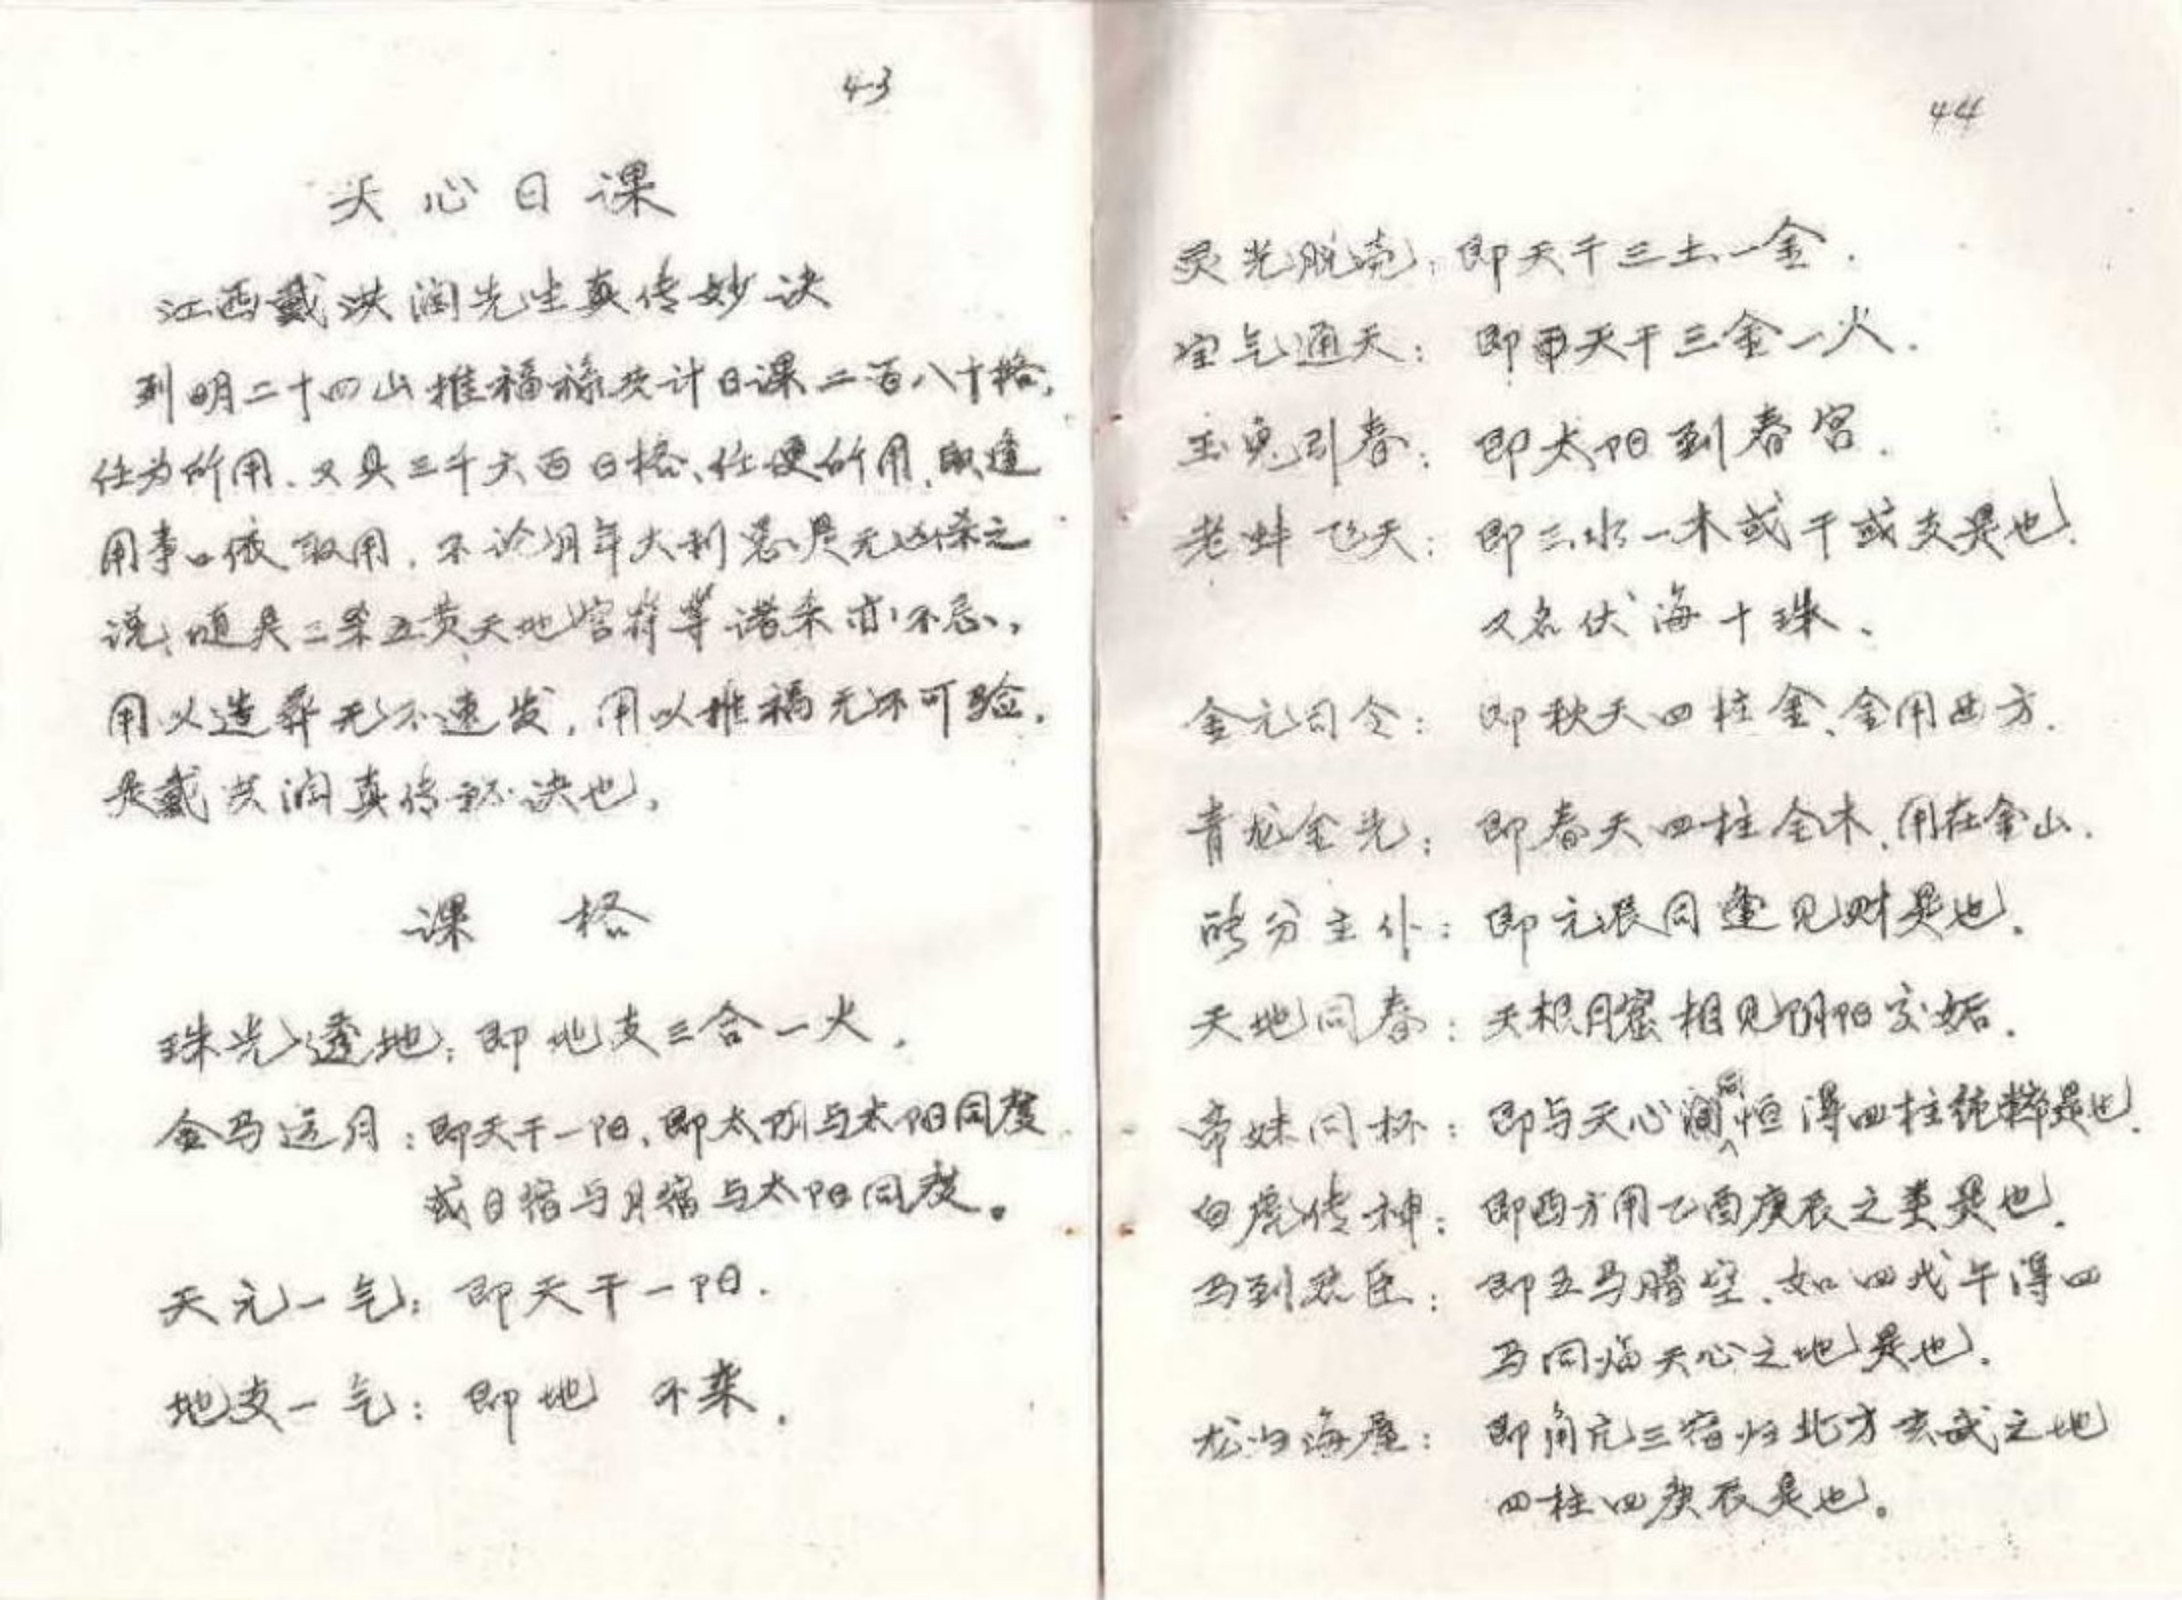 43
天心日课
江西戴洪润先生真传妙决
到明二十四山推福禄共计日课二百八十格,
任为所用.又具三千六百日格、任便所用,取逢
用事 依取用.不论月年大利总是无凶杀之
说,随是三杀五黄天地官符等诸杀亦不忌,
用以造葬无不速发,用以推福无不可验.
是戴洪润真传秘决也,
课格
珠光透地:即地支三合一火.
金马运月:即天干一阳,即太阴与太阳同度
或日宿与月宿与太阳同度。
天元一气:即天干一阳.
地支一气:即地 不杂.
44
灵光脱壳:即天干三土一金.
宝气通天:即天干三金一火.
玉兔引春:即太阳到春宫.
老蚌飞天:即三水一木或干或支是也.
又名伏海十珠.
金元司令:即秋天四柱金、金用西方.
青龙金光:即春天四柱全木,用在金山.
分主仆:即元辰同逢见财是也.
天地同春:天根月窟相见阴阳交姤.
帝妹同杯:即与天心润同恒得四柱纯粹是也.
白虎传神:即酉方用乙酉庚辰之类是也.
马到君臣:即五马腾空、如四戊午得四
马同临天心之地是也.
龙归海屋:即角亢三宿归北方玄武之地
四柱四庚辰是也。